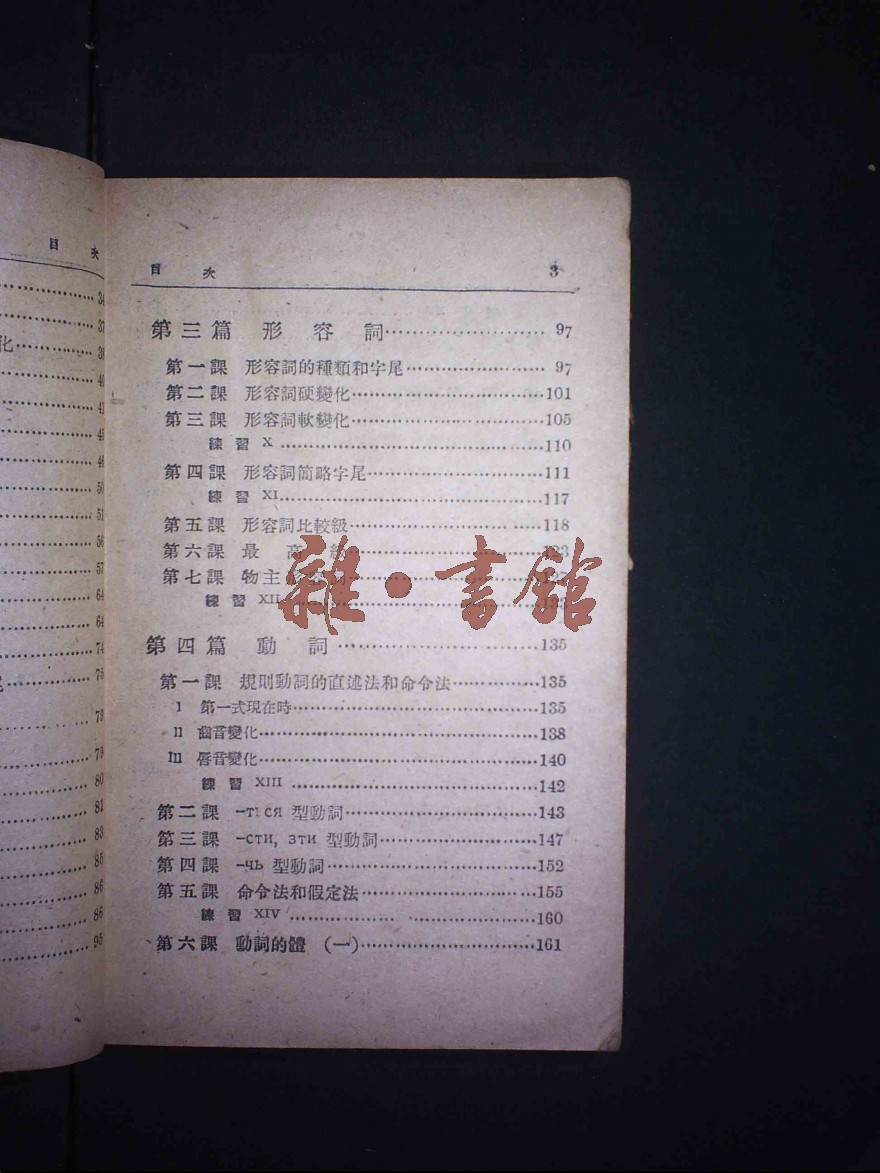 目 次
34
37
化 38
40
41
45
46
50
51
56
57
64
64
74
75
79
79
80
81
83
85
86
86
95
目 次 3
第三篇 形容詞 97
第一課 形容詞的種類和字尾 97
第二課 形容詞硬變化 101
第三課 形容詞軟變化 105
練習 X 110
第四課 形容詞簡略字尾 111
練習 XI 117
第五課 形容詞比較級 118
第六課 最高級 123
第七課 物主
練習 XII 133
雜·書館
第四篇 動詞 135
第一課 規則動詞的直述法和命令法 135
I 第一式現在時 135
II 齒音變化 138
III 唇音變化 140
練習 XIII 142
第二課 -ться 型動詞 143
第三課 -сти, зти 型動詞 147
第四課 -чь 型動詞 152
第五課 命令法和假定法 155
練習 XIV 160
第六課 動詞的體 (一) 161